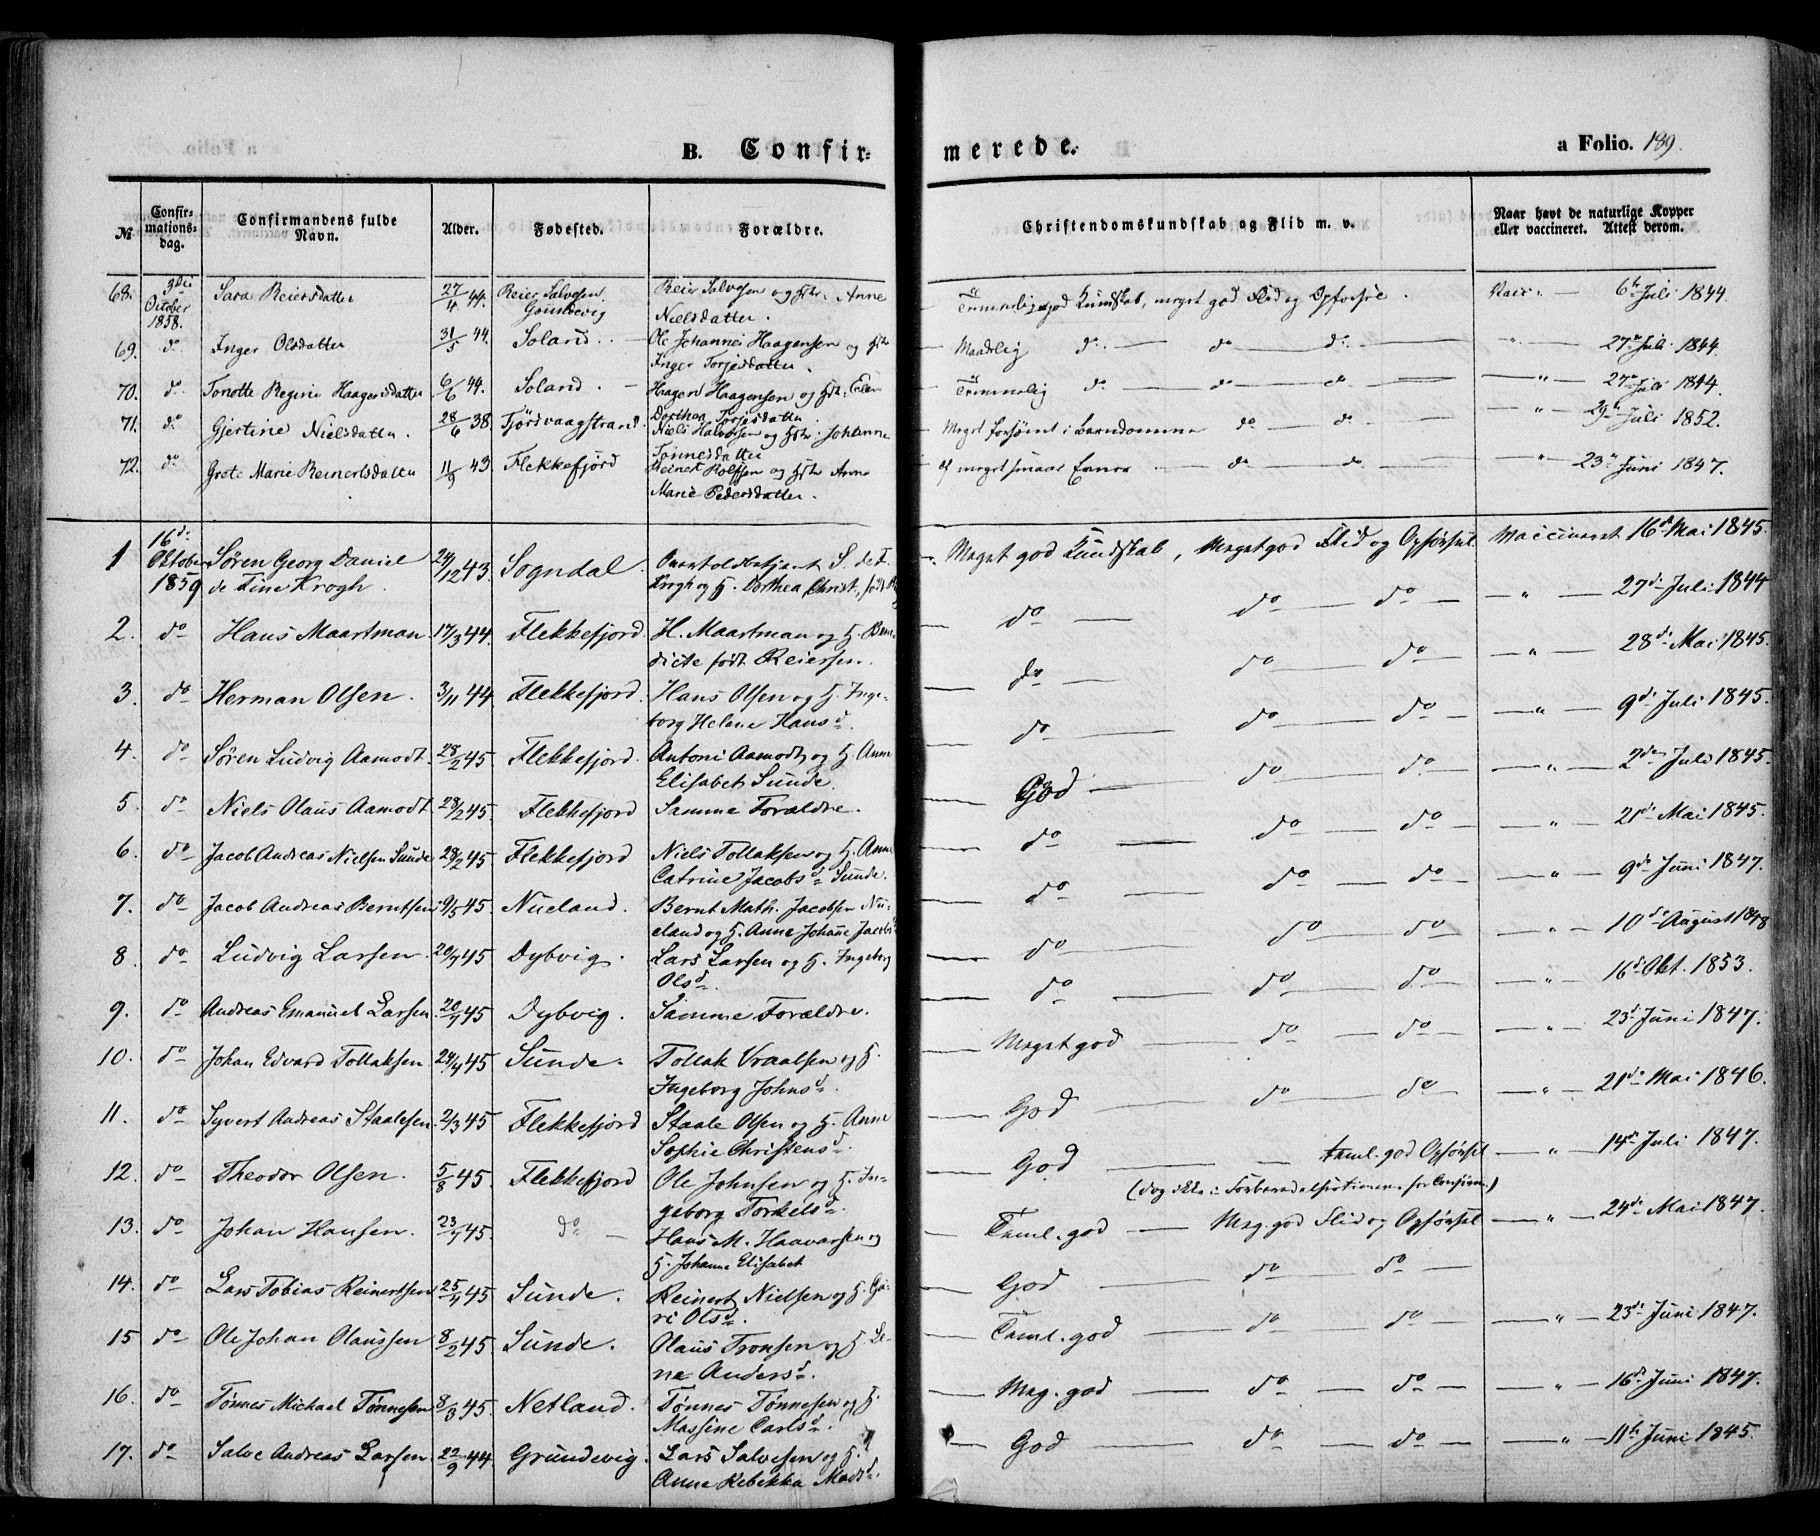 B. Confir-
merede.
a Folio. 189.
№
Confir-
mations-
dag.
Confirmandens fulde
Navn.
Alder.
Fødested.
Forældre.
Christendomskundskab og Flid m. v.
Naar havt de naturlige Kopper
eller vaccineret. Attest derom.
68. 3die October 1858. Sara Reiersdatter 27/4 44. Reier Salvesen Gundevig Reier Salvesen og Hstr. Anne
Nielsdatter. Temmelig god Kundskab, meget god Flid og Opførsel. Vacc. 6te Juli 1844.
69. do Inger Olsdatter 31/5 44. Soland. Ole Johannes Haagensen og Hstr
Inger Torjesdatter. Maadelig do do do " 27de Juli 1844.
70. do Tonette Regine Haagensdatter 6/6 44. Soland. Haagen Haagensen og Hst. Elen
Dorthea Torjesdatter. Temmelig do do do " 27de Juli 1844.
71. do Gjertine Nielsdatter. 28/6 38. Tjørsvaagstrand. Niels Halvorsen og Hstr. Johanne
Tønnesdatter Meget forsømt i Barndommen do do " 29de Juli 1852.
72. do Grete Marie Reinertsdatter 11/9 43. Flekkefjord Reinert Rolfsen og Hstr Anne
Marie Pedersdatter. af meget smaae Evner do do " 23de Juni 1847.
1 16de Oktober 1859 Søren Georg Daniel
de Fine Krogh. 24/12 43. Sogndal. S. de F.
Krogh og H. Dorthea Christ. født Meget god Kundskab, Meget god Flid og Opførsel. Vaccineret 16de Mai 1845.
2. do Hans Maartman 17/3 44. Flekkefjord. H. Maartman og H. Ben-
dicte født Reiersen. do do do " 27de Juli 1844
3. do Herman Olsen. 3/11 44 Flekkefjord. Hans Olsen og H. Inge-
borg Helene Hansd. do do do " 28de Mai 1845.
4. do Søren Ludvig Aamodt. 28/2 45 Flekkefjord. Antoni Aamodt og H. Anne
Elisabet Sunde. do do do " 9de Juli 1845.
5. do Niels Olaus Aamodt 28/2 45. Flekkefjord Samme Forældre. God do do " 2den Juli 1845.
6. do Jacob Andreas Nielsen Sunde 28/2 45 Flekkefjord Niels Tollaksen og H. Anne
Catrine Jacobsd. Sunde. do do do " 21de Mai 1845.
7. do Jacob Andreas Berntsen 9/5 45 Nueland. Bernt Math. Jacobsen Nu-
eland og H. Anne Johanne Jacobsd. do do do " 9de Juni 1847.
8. do Ludvig Larsen. 20/7 45 Dybvig. Lars Larsen og H. Ingeborg
Olsd. do do do " 10de August 1848
9. do Andreas Emanuel Larsen. 20/7 45 Dybvig. Samme Forældre. do do do " 16de Okt. 1853.
10. do Johan Edvard Tollaksen 24/4 45 Sunde. Tollak Vraalsen og H.
Ingeborg Johnsd. Meget god do do " 23de Juni 1847.
11. do Syvert Andreas Staalesen 2/3 45 Flekkefjord Staale Olsen og H. Anne
Sophie Christensd. God do do " 21de Mai 1846.
12. do Theodor Olsen. 5/8 45. Flekkefjord Ole Johnsen og H. In-
geborg Torkelsd. God. teml. god Opførsel " 14de Juli 1847.
(dog ikke i Forberedelsestimerne for Confirm.)
13. do Johan Hansen. 23/7 45. do Hans M. Haavarsen og
H. Johanne Elisabet Teml. god Meg. god Flid og Opførsel " 24de Mai 1847.
14. do Lars Tobias Reinertsen 25/4 45 Sunde. Reinert Nielsen og H. Gu-
ri Olsd. God do do
15 do Ole Johan Olaussen 8/2 45. Sunde. Olaus Tronsen og H. Le-
ne Andersd. Teml. god do do " 23de Juni 1847.
16. do Tønnes Michael Tønnesen 8/3 45. Netland. Tønnes Tønnesen og H.
Massine Carlsd. Meg. god do do " 16de Juni 1847.
17. do Salve Andreas Larsen 22/9 44 Grundevig. Lars Salvesen og H.
Anne Rebekka Madsd. God do do " 11te Juni 1845.